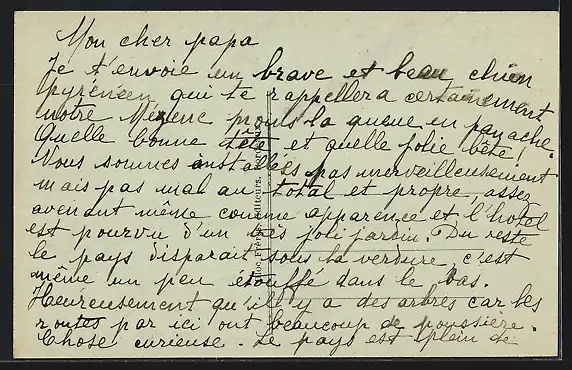 Mon cher papa
Je t'envoie un brave et beau chien
pyrénéen qui te rappellera certainement
notre Mézenc moins la queue en panache.
Quelle bonne tête et quelle jolie bête!
Nous sommes installés pas merveilleusement
mais pas mal au total et propre, assez
avenant même comme apparence et l'hôtel
est pourvu d'un très joli jardin. Du reste
le pays disparait sous la verdure, c'est
même un peu étouffé dans le bas.
Heureusement qu'il y a des arbres car les
routes par ici ont beaucoup de poussière.
Chose curieuse. Le pays est plein de
Frères, Éditeurs,